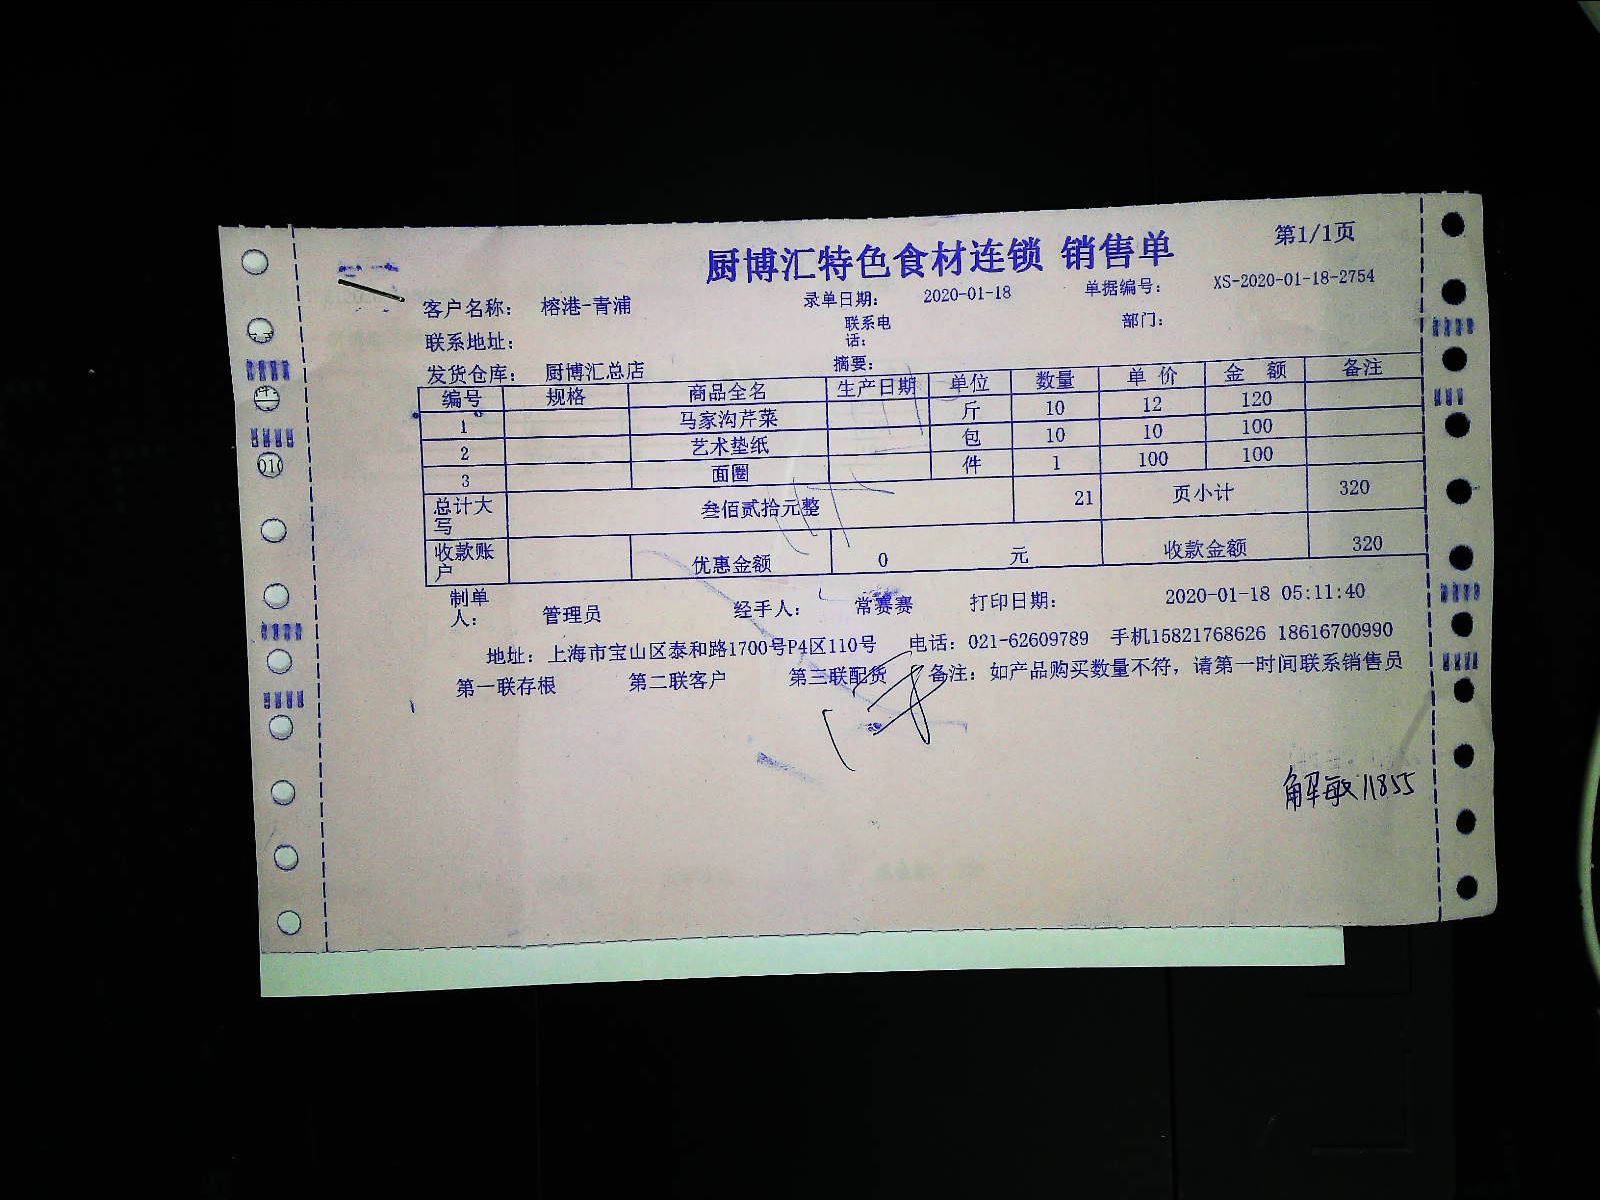 厨博汇特色食材连锁 销售单 第1/1页
客户名称: 榕港-青浦 录单日期: 2020-01-18 单据编号: XS-2020-01-18-2754
联系地址: 联系电话: 部门:
发货仓库: 厨博汇总店 摘要:
编号 规格 商品全名 生产日期 单位 数量 单价 金额 备注
1 马家沟芹菜 斤 10 12 120
2 艺术垫纸 包 10 10 100
3 面圈 件 1 100 100
总计大写 叁佰贰拾元整 21 页小计 320
收款账户 优惠金额 0 元 收款金额 320
制单人: 管理员 经手人: 常赛赛 打印日期: 2020-01-18 05:11:40
地址: 上海市宝山区泰和路1700号P4区110号 电话: 021-62609789 手机15821768626 18616700990
第一联存根 第二联客户 第三联配货 备注: 如产品购买数量不符, 请第一时间联系销售员
解敏 11855